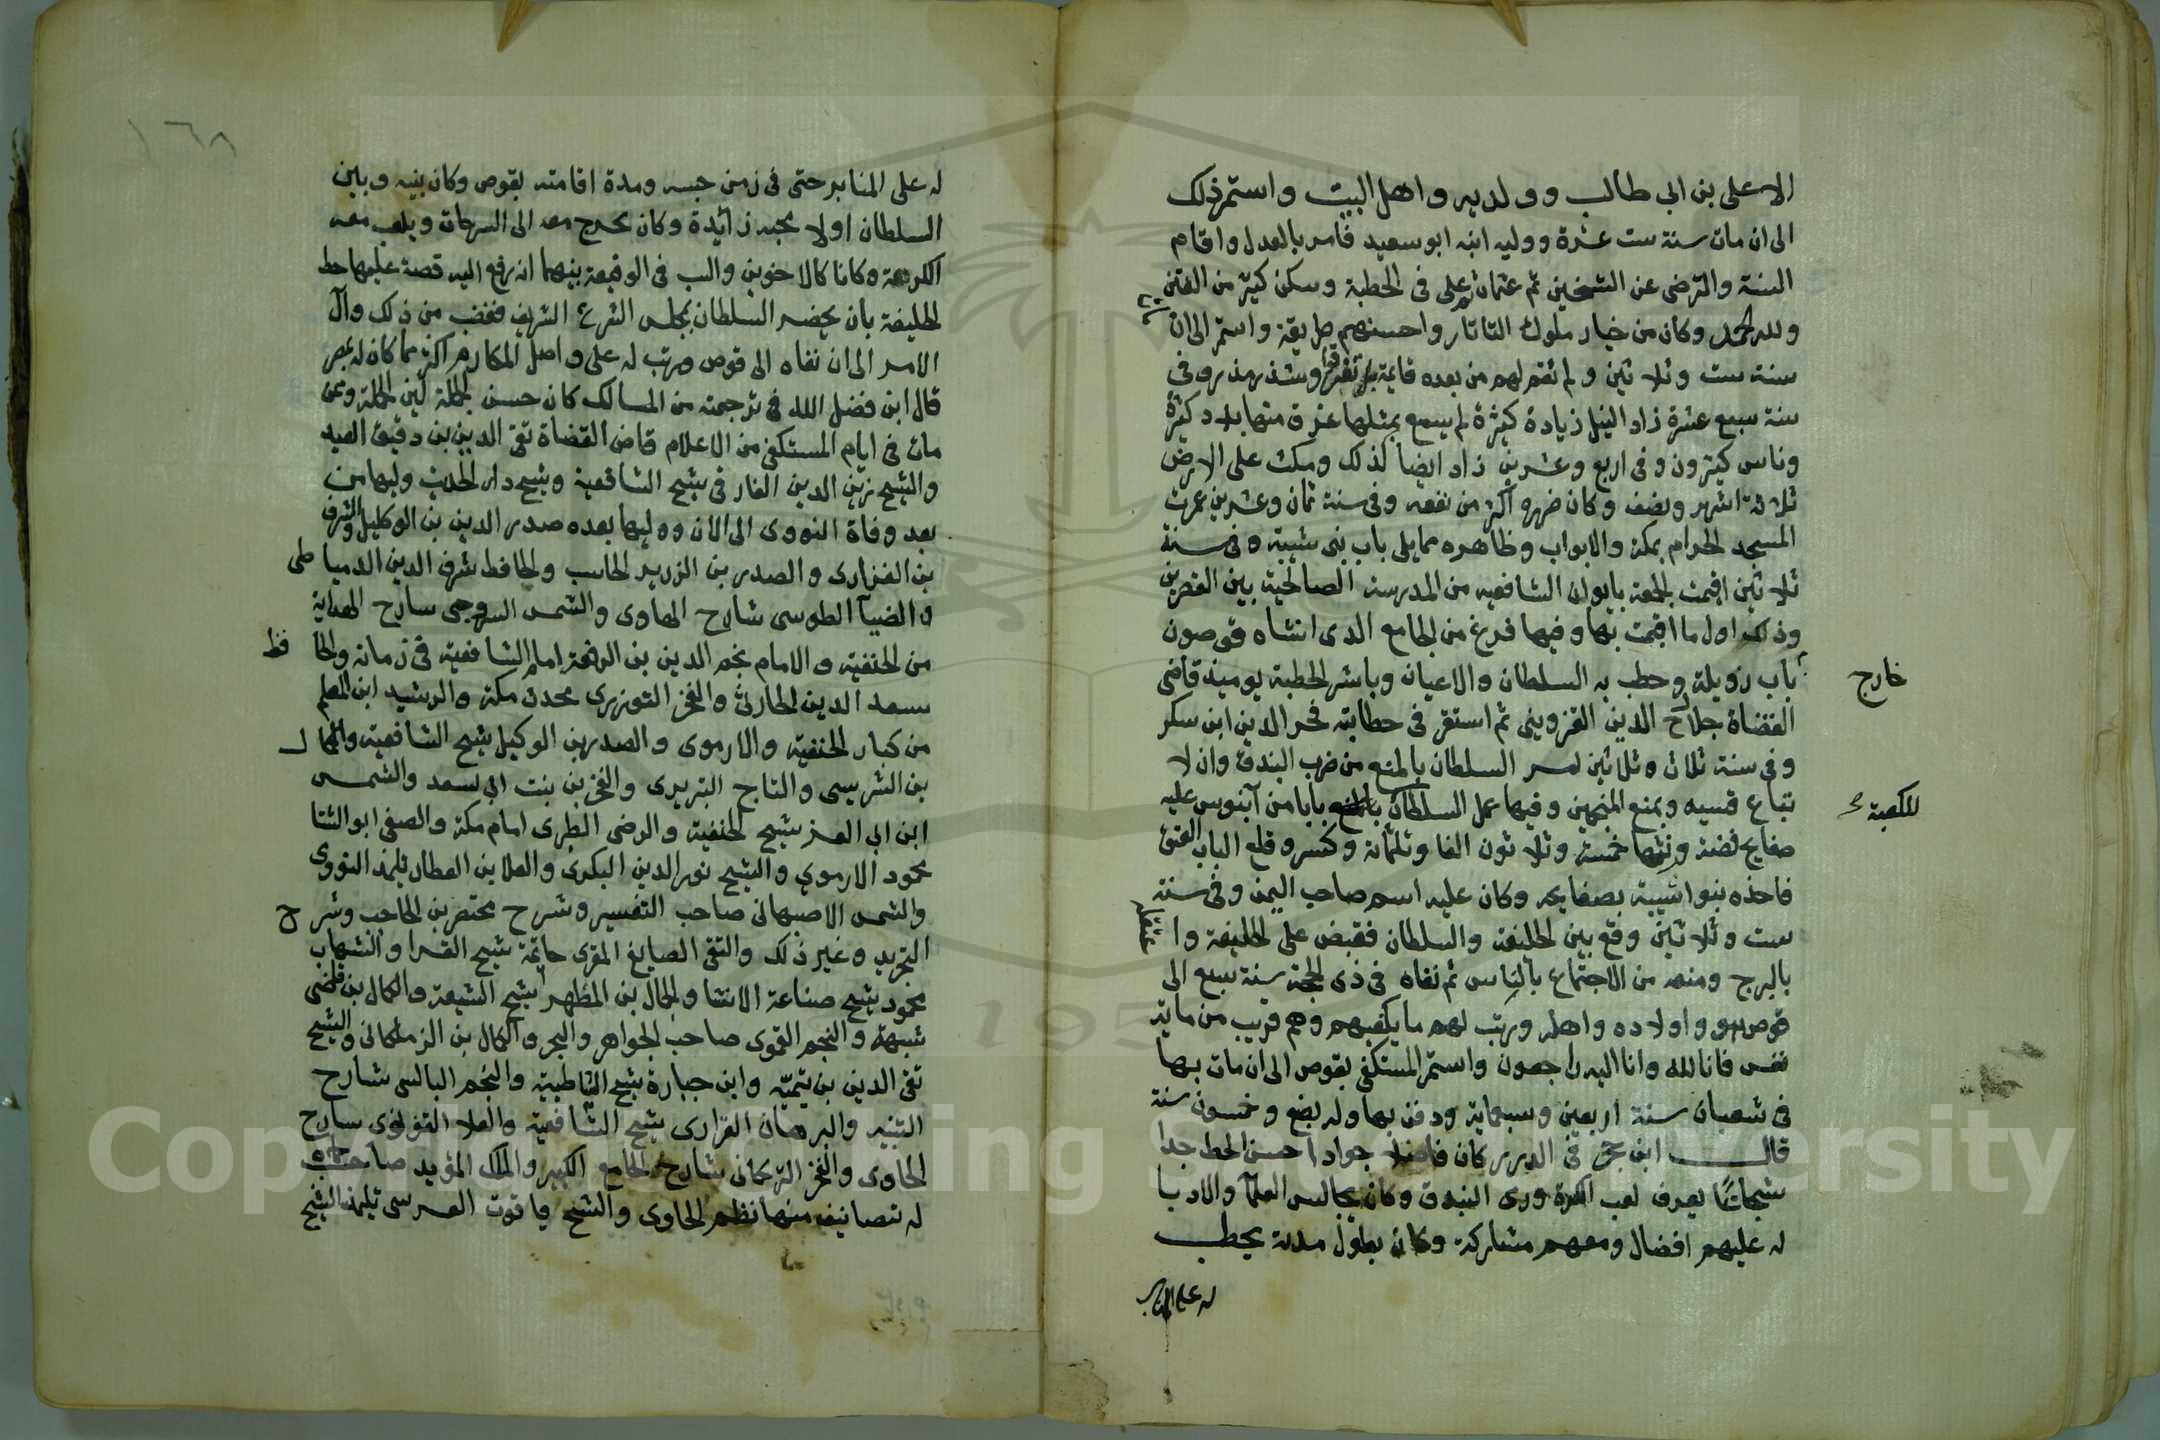 الا على بن ابى طالب وولديه واهل البيت واستمر ذلك
الى ان مات سنة ست عشرة ووليه ابنه ابو سعيد فامر بالعدل واقام
السنة والترضى عن الشيخين ثم عثمان ثم على فى الخطبة وسكن كثير من الفتن
ولله الحمد وكان من خيار ملوك التاتار واحسنهم طريقة واستمر الى ان مات
سنة ست وثلاثين ولم تقم لهم من بعده قايمة بل تفرقوا شذر مذر وفى
سنة سبع عشرة زاد النيل زيادة كثيرة لم يسمع بمثلها غرق منها بلاد كثيرة
وناس كثيرون وفى اربع وعشرين زاد ايضا كذلك ومكث على الارض
ثلاثة اشهر ونصف وكان ضرره اكثر من نفعه وفى سنة ثمان وعشرين عمرت
المسجد الحرام بمكة والابواب وظاهره مما يلى باب بنى شيبة وفى سنة
ثلاثين اقيمت الجمعة بايوان الشافعيه من المدرسة الصالحية بين القصرين
وذلك اول ما اقيمت بها وفيها فرغ من الجامع الذى انشاه قوصون
خارج
باب زويلة وخطب به السلطان والاعيان وباشر الخطبة يوميذ قاضى
القضاة جلال الدين القزوينى ثم استقر فى خطابته فخر الدين ابن سكر
وفى سنة ثلاث وثلاثين امر السلطان بالمنع من ضرب البندق وان لا
تباع قسيه وبمنع المنجمين وفيها عمل السلطان للكعبة بابا من آبنوس عليه
صفايح فضة وزنتها خمسة وثلاثون الفا وثلثماية وكسر وقلع الباب العتيق
فاخذه بنوا شيبة بصفايحه وكان عليه اسم صاحب اليمن وفى سنة
ست وثلاثين وقع بين الخليفة والسلطان فقبض على الخليفة واعتقله
بالبرج ومنعه من الاجتماع بالناس ثم نفاه فى ذى الحجة سنة سبع الى
قوص هو واولاده واهله ورتب لهم ما يكفيهم وهم قريب من ماية
نفس فانا لله وانا اليه راجعون واستمر المستكفى بقوص الى ان مات بها
فى شعبان سنة اربعين وسبعماية ودفن بها وله بضع وخمسون سنة
قال ابن حجر فى الدرر كان فاضلا جوادا حسن الخط جدا
شجاعا يعرف لعب الكرة ورمى البندق وكان يجالس العلما والادبا
له عليهم افضال ومعهم مشاركة وكان بطول مدته يخطب
له على المنابر
١٦٨
له على المنابر حتى فى زمن حبسه ومدة اقامته بقوص وكان بينه وبين
السلطان اولا محبة زايدة وكان يخرج معه الى السرحات ويلعب معه
الكرة وكانا كالاخوين والسبب فى الوقيعة بينهما انه رفع اليه قصة عليها خط
الخليفة بان يحضر السلطان بمجلس الشرع الشريف فغضب من ذلك وآل
الامر الى ان نفاه الى قوص ورتب له على واصل المكارم اكثر مما كان له بمصر
قال ابن فضل الله فى ترجمته من المسالك كان حسن الجملة لين الحملة وممن
مات فى ايام المستكفى من الاعلام قاضى القضاة تقى الدين بن دقيق العيد
والشيخ زين الدين الفارقى شيخ الشافعية وشيخ دار الحديث وليها من
بعد وفاة النووى الى الان ووليها بعده صدر الدين بن الوكيل والشرف
بن الفزارى والصدر بن الزرير الحاسب والحافظ شرف الدين الدمياطى
والضيآ الطوسى شارح الحاوى والشمس السروجى شارح الهداية
من الحنفية والامام نجم الدين بن الرفعة امام الشافعية فى زمانه والحافظ
سعد الدين الحارثى والفخر التوزرى محدث مكة والرشيد ابن المعلم
من كبار الحنفية والارموى والصدر بن الوكيل شيخ الشافعية والكمال
بن الشريسى والتاج التبريزى والفخر بن بنت ابى سعد والشمس
ابن ابى العز شيخ الحنفية والرضى الطبرى امام مكة والصفى ابو الثنا
محمود الارموى والشيخ نور الدين البكرى والعلا بن العطار تلميذ النووى
والشمس الاصبهانى صاحب التفسير وشرح مختصر بن الحاجب وشرح
التجريد وغير ذلك والتقى الصايغ المقرى خاتمة شيخ القرا والشهاب
محمود شيخ صناعة الانشا والجمال بن المطهر شيخ الشيعة والكمال بن قاضى
شهبة والنجم القمولى صاحب الجواهر والبحر والكمال بن الزملكانى والشيخ
تقى الدين بن تيمية وابن جبارة شيخ الشاطبية والنجم البالسى شارح
التنبيه والبرهان الفزارى شيخ الشافعية والعلا القونوى شارح
الحاوى والفخر التركمانى شارح الجامع الكبير والملك المؤيد صاحب حماه
له تصانيف منها نظم الحاوى والشيخ ياقوت العرسى تلميذ الشيخ